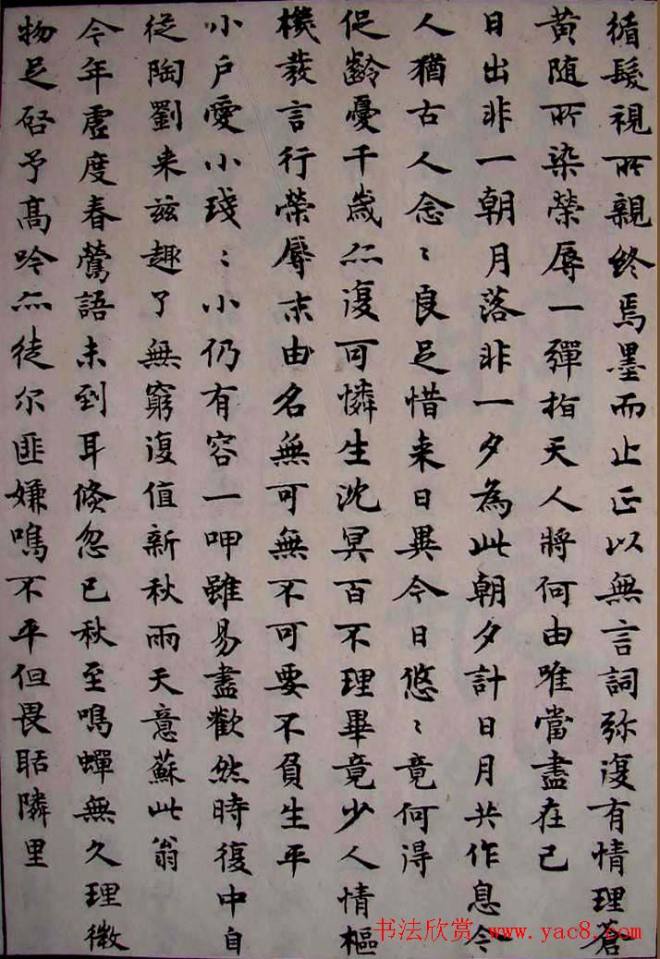 循髮視所親終焉墨而止正以無言詞弥復有情理蒼
黄随所染榮辱一彈指天人將何由唯當盡在己
日出非一朝月落非一夕為此朝夕計日月共作息今
人猶古人念〻良足惜来日異今日悠〻竟何得
促齡憂千歲亦復可憐生沈冥百不理畢竟少人情樞
機發言行榮辱末由名無可無不可要不負生平
小戶愛小琖〻小仍有容一呷雖易盡歡然時復中自
從陶劉来兹趣了無窮復值新秋雨天意蘇此翁
今年虛度春鶯語未到耳倏忽已秋至鳴蟬無久理微
物足啓予高吟亦徒尔匪嫌鳴不平但畏聒隣里
书法欣赏 www.yac8.com